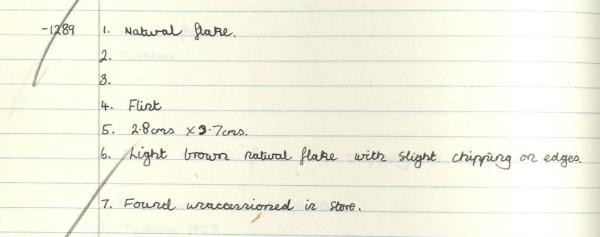 -1289 1. Natural flake.
2.
3.
4. Flint
5. 2.8cms x 3.7cms.
6. Light brown natural flake with slight chipping on edges.
7. Found unaccessioned in store.